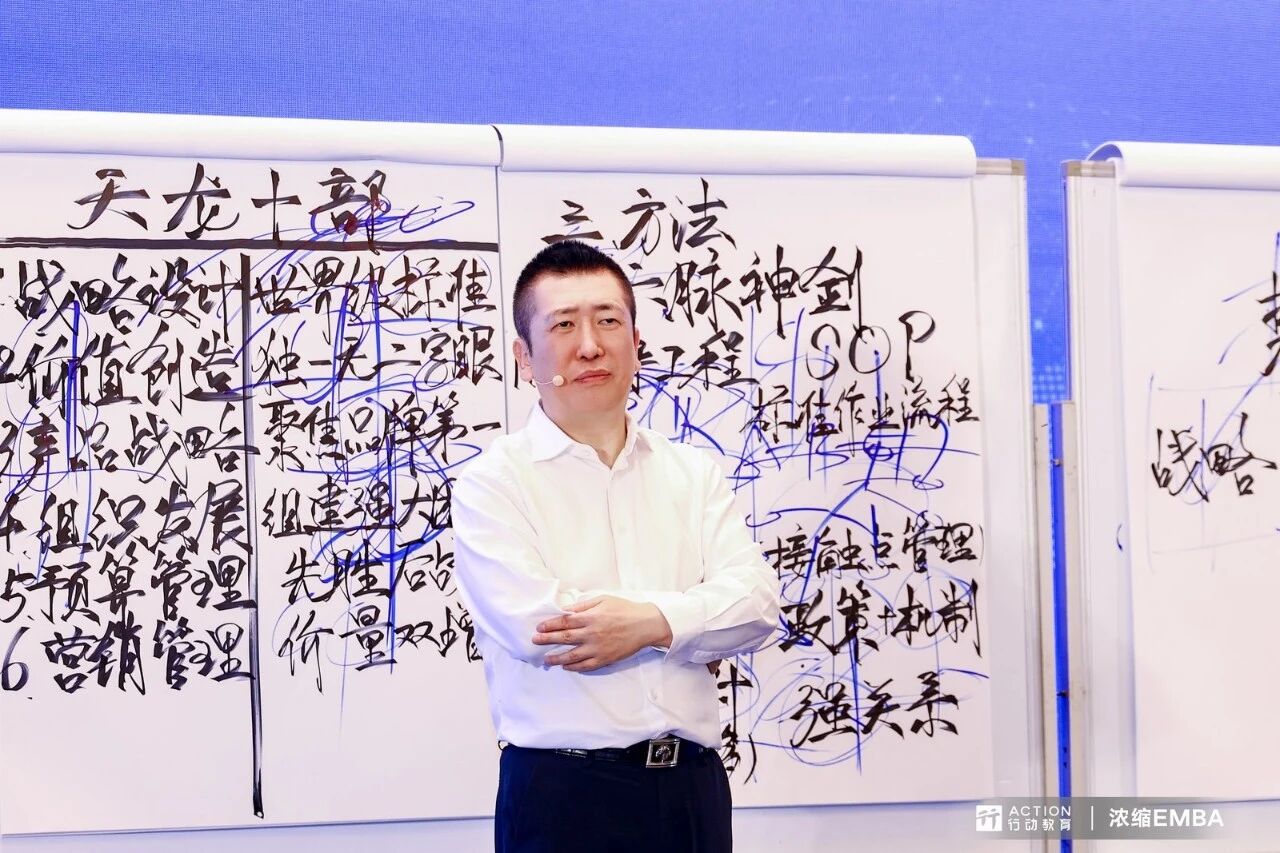 天龙十部
战略设计 世界级标准
2 价值创造 独一无二字眼
3 声品战略 聚焦品牌第一
4 组织发展 组建强大
5 预算管理 先胜后战
6 营销管理 价量双增
三方法
六脉神剑
工程 SOP
标准作业流程
接触点管理
政策+机制
强关系
战略
ACTION
行动教育
浓缩EMBA